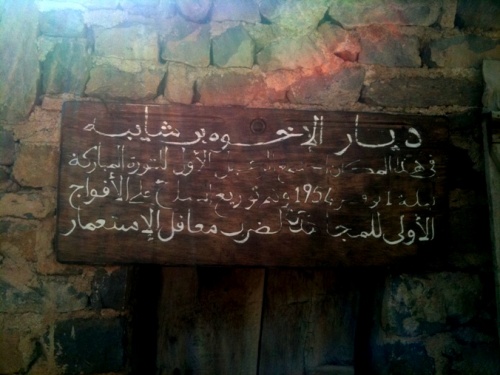 ديار الإخوه بن شايبه
في هذا المكان الأول للثورة المباركة
ليلة 1954 توزيع السلاح على الأفواج
الأولى للمجاهدين لضرب معاقل الإستعمار